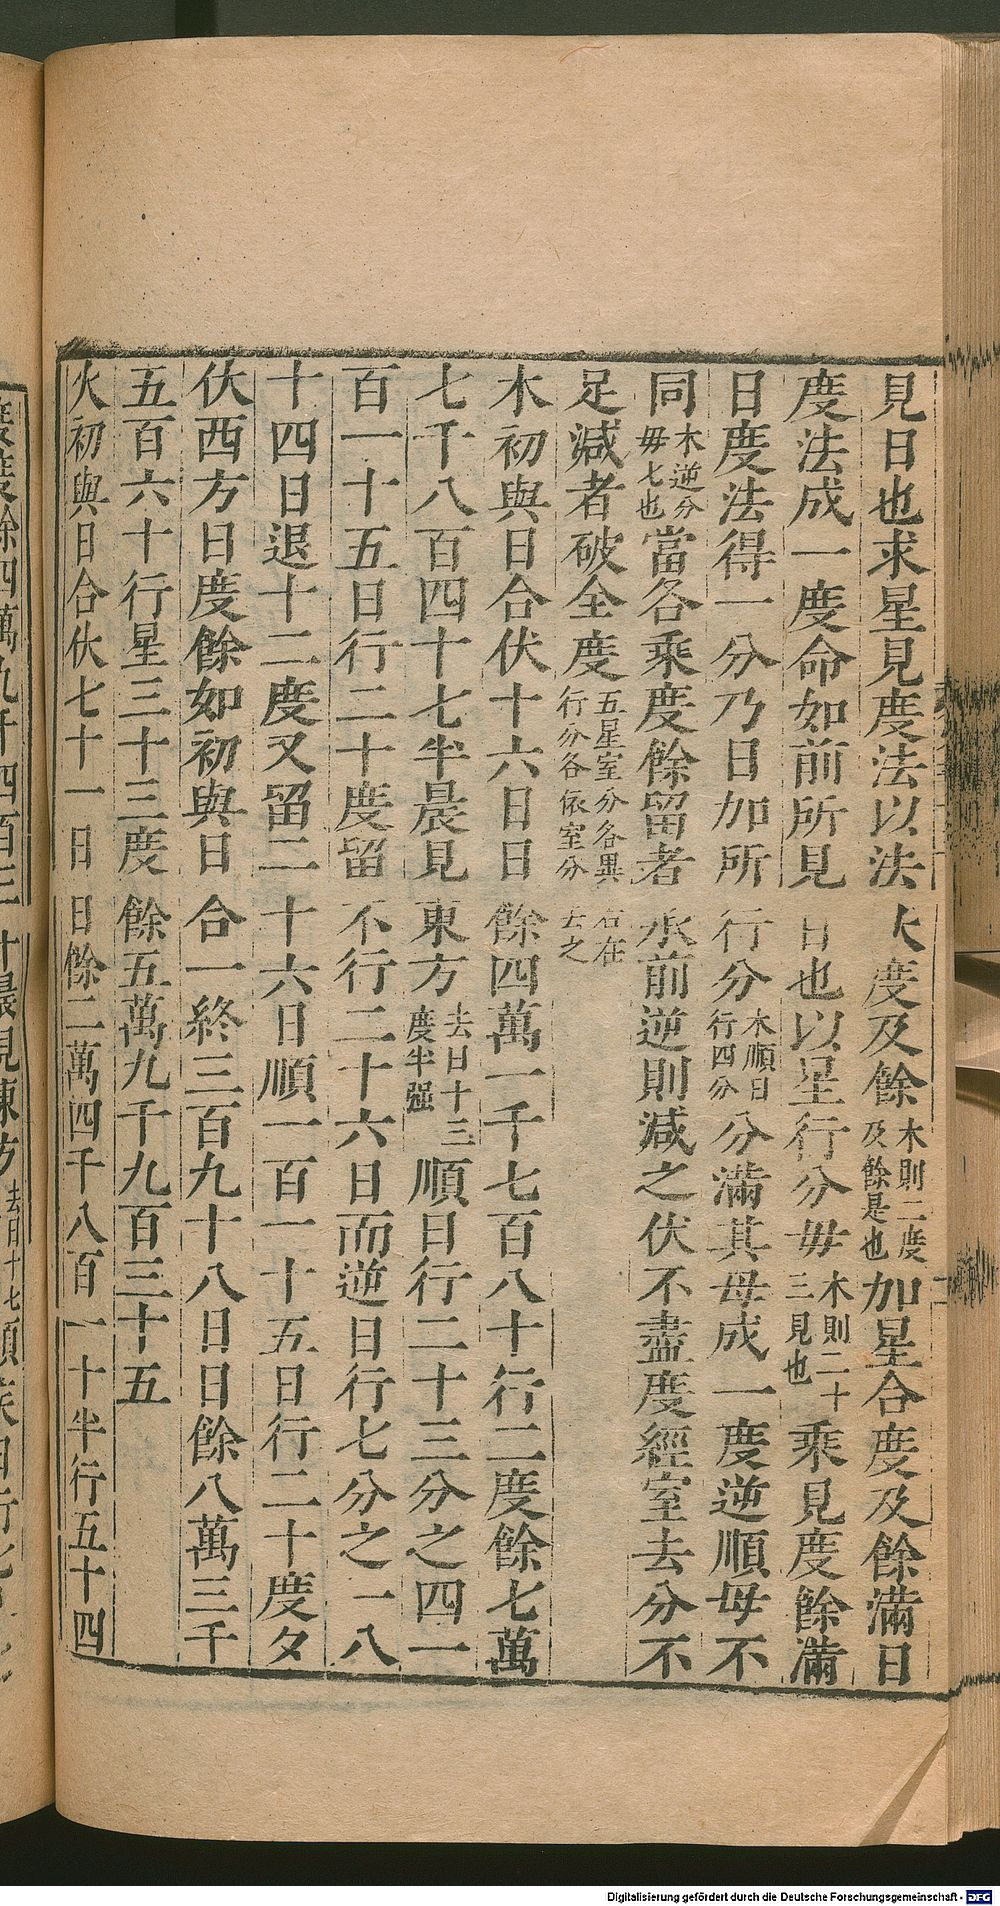 見日也求星見度法以法伏度及餘木則二度及餘是也加星合度及餘滿日
度法成一度命如前所見日也以星行分毋木則二十三見也乘見度餘滿
日度法得一分乃日加所行分木順日行四分分滿其母成一度逆順母不
同木逆分毋七也當各乘度餘留者承前逆則減之伏不盡度經室去分不
足減者破全度五星室分各異行分各依室分去之
木初與日合伏十六日日餘四萬一千七百八十行二度餘七萬
七千八百四十七半晨見東方去日十三度半强順日行二十三分之四一
百一十五日行二十度留不行二十六日而逆日行七分之一八
十四日退十二度又留二十六日順一百一十五日行二十度夕
伏西方日度餘如初與日合一終三百九十八日日餘八萬三千
五百六十行星三十三度餘五萬九千九百三十五
火初與日合伏七十一日日餘二萬四千八百一十半行五十四
Digitalisierung gefördert durch die Deutsche Forschungsgemeinschaft - DFG